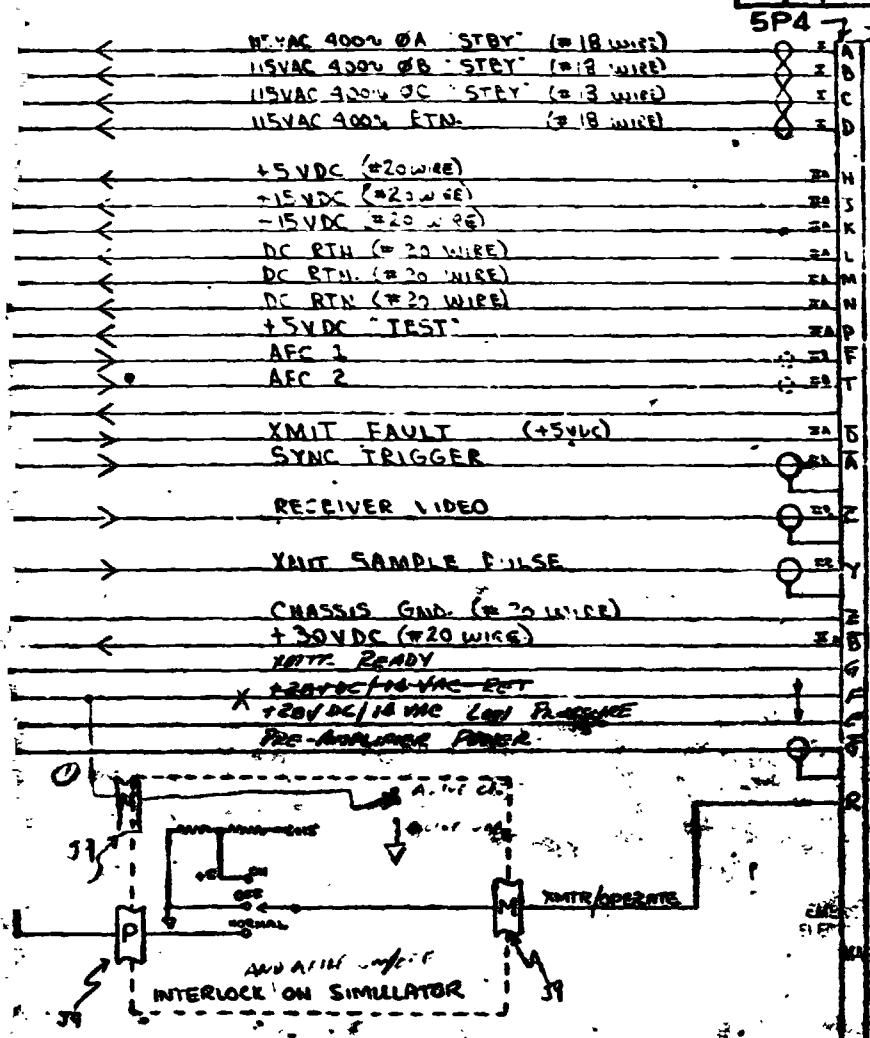 5P4
115VAC 400~ ØA "STBY" (#18 WIRE) A
115VAC 400~ ØB "STBY" (#18 WIRE) B
115VAC 400~ ØC "STBY" (#18 WIRE) C
115VAC 400~ RTN. (#18 WIRE) D
+5VDC (#20 WIRE) H
+15VDC (#20 WIRE) J
-15VDC (#20 WIRE) K
DC RTN (#20 WIRE) L
DC RTN. (#20 WIRE) M
DC RTN (#20 WIRE) N
+5VDC "TEST" P
AFC 1 F
AFC 2 T
XMIT FAULT (+5VDC)
SYNC TRIGGER A
RECEIVER VIDEO
XMIT SAMPLE PULSE Y
CHASSIS GND. (#20 WIRE)
+30VDC (#20 WIRE) B
XMTR READY
+28VDC/14 VAC RET
X
+28VDC/14 VAC LOW PRESSURE
PRE-AMPLIFIER POWER
R
J9
+5
ON
OFF
NORMAL
P
M
XMTR/OPERATE
INTERLOCK ON SIMULATOR
J9
J9